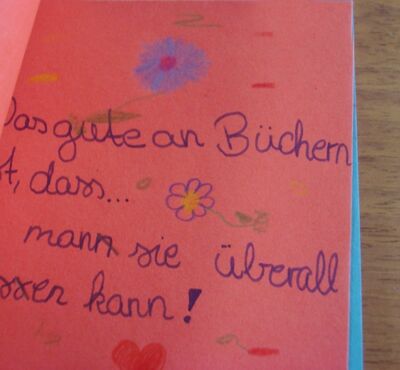 Das gute an Büchern
st, dass...
mann sie überall
ssen kann!